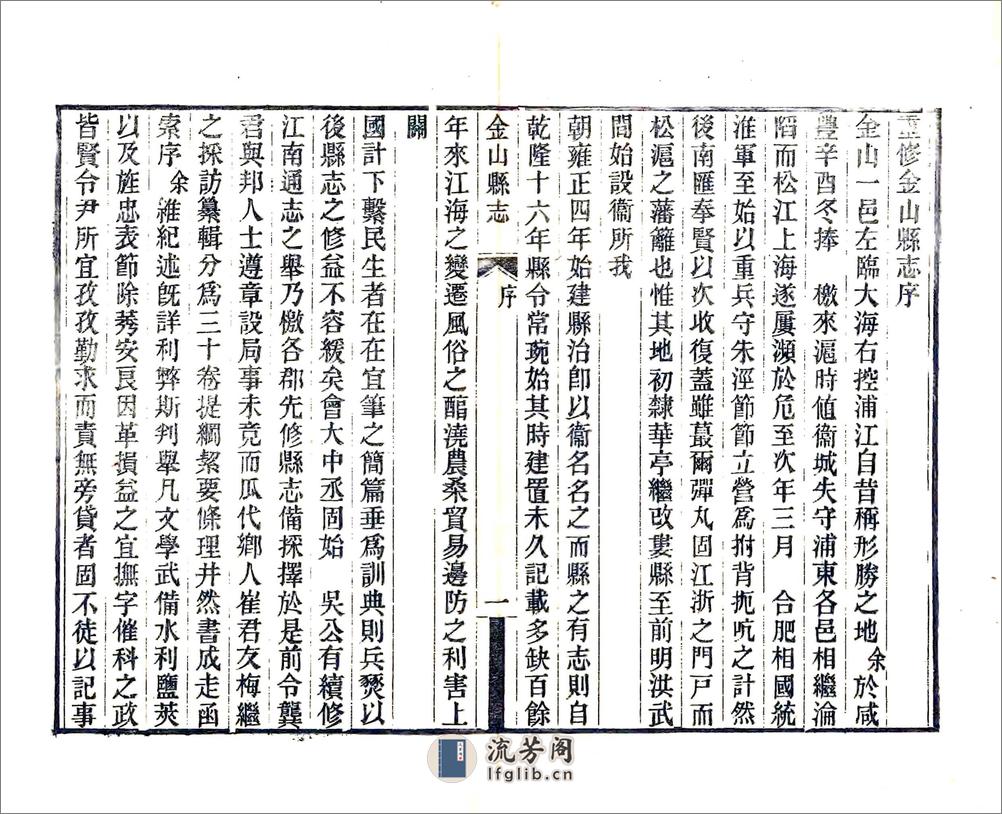 重修金山縣志序
金山一邑左臨大海右控浦江自昔稱形勝之地余於咸
豐辛酉冬捧　檄來滬時值衞城失守浦東各邑相繼淪
陷而松江上海遂屢瀕於危至次年三月　合肥相國統
淮軍至始以重兵守朱涇節節立營爲拊背扼吭之計然
後南匯奉賢以次收復蓋雖蕞爾彈丸固江浙之門戸而
松滬之藩籬也惟其地初隸華亭繼改婁縣至前明洪武
間始設衞所我
朝雍正四年始建縣治卽以衞名名之而縣之有志則自
乾隆十六年縣令常琬始其時建置未久記載多缺百餘
金山縣志　序　一
年來江海之變遷風俗之醇澆農桑貿易邊防之利害上
關
國計下繫民生者在在宜筆之簡篇垂爲訓典則兵燹以
後縣志之修益不容緩矣會大中丞固始　吳公有續修
江南通志之舉乃檄各郡先修縣志備採擇於是前令龔
君與邦人士遵章設局事未竟而瓜代鄉人崔君友梅繼
之採訪纂輯分爲三十卷提綱絜要條理井然書成走函
索序余維紀述旣詳利弊斯判舉凡文學武備水利鹽莢
以及旌忠表節除莠安良因革損益之宜撫字催科之政
皆賢令尹所宜孜孜勤求而責無旁貸者固不徒以記事
流芳阁
lfglib.cn